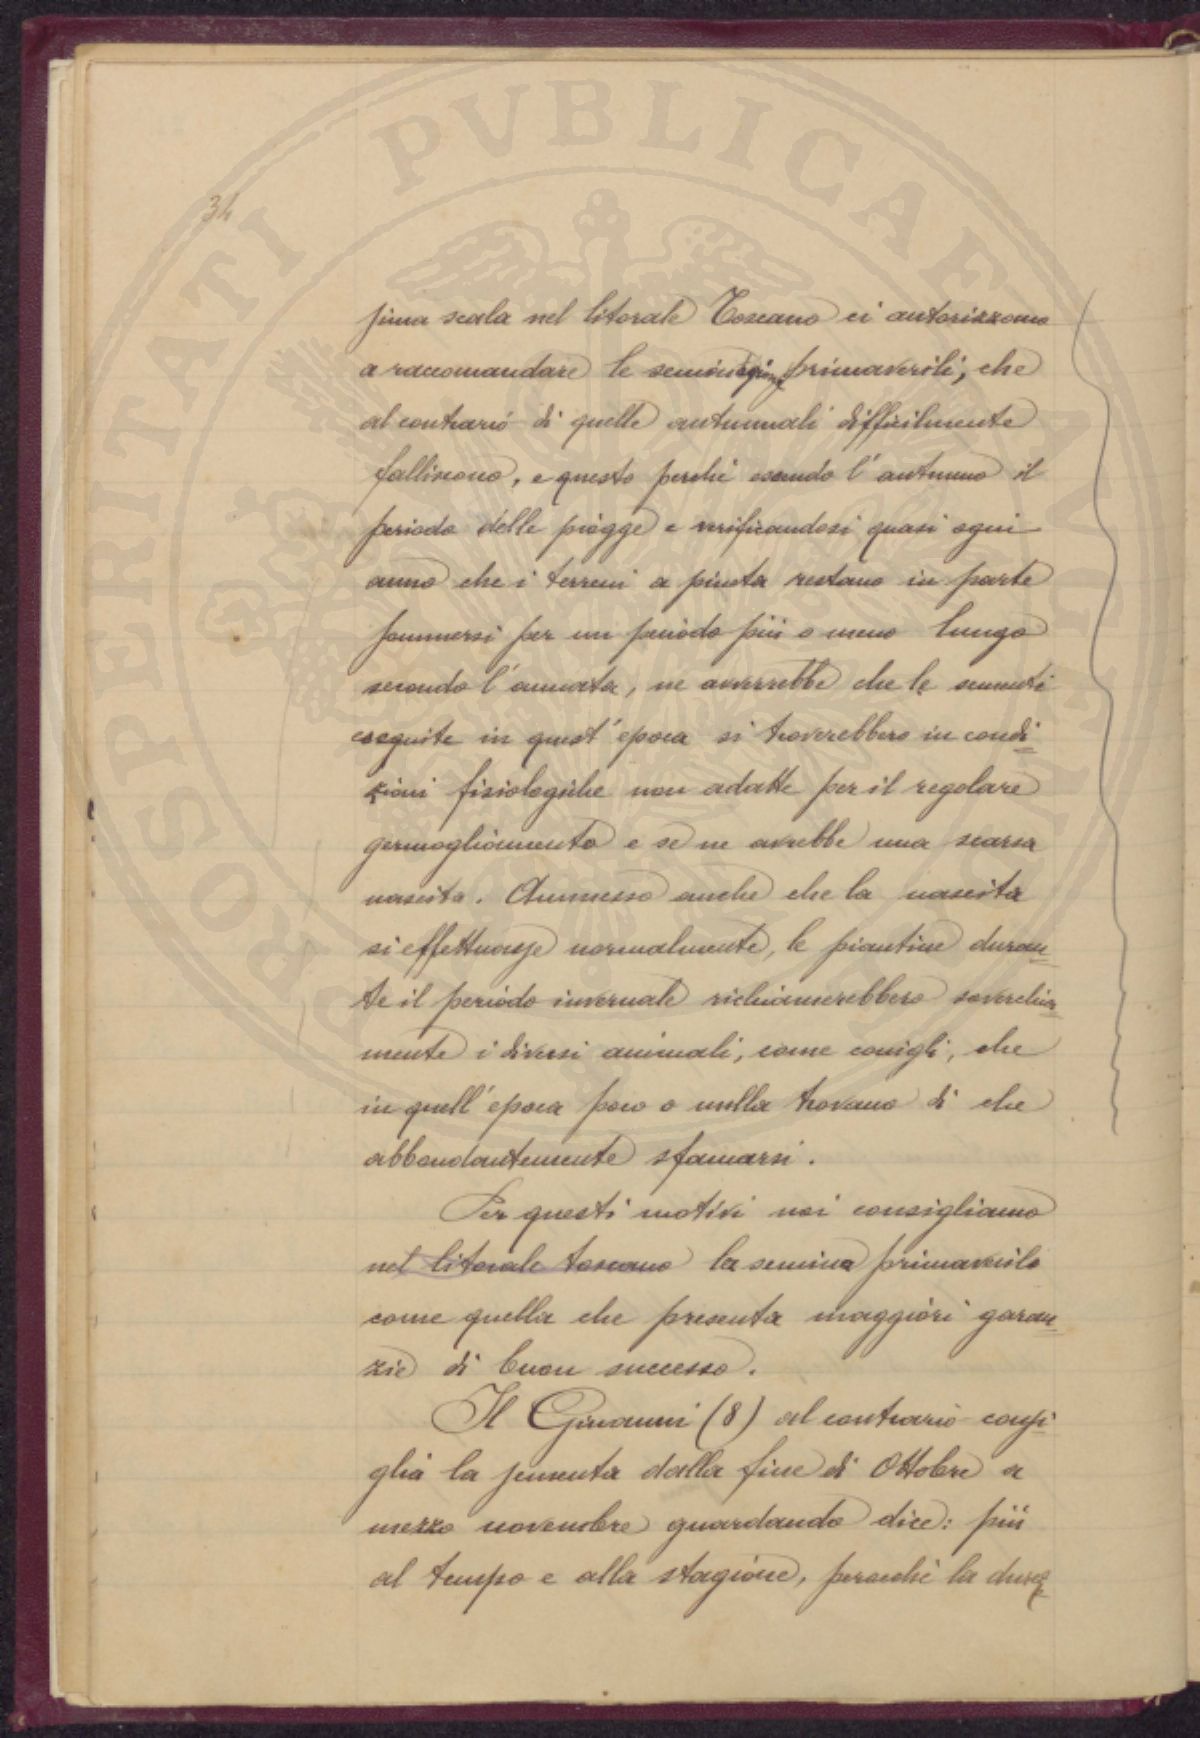 PROSPERITATI PVBLICAE AVGENDAE
34
sima scala nel litorale Toscano ci autorizzono
a raccomandare le seminagioni primaverili, che
al contrario di quelle autunnali difficilmente
falliscono, e questo perché essendo l'autunno il
periodo delle piogge e verificandosi quasi ogni
anno che i terreni a pineta restano in parte
sommersi per un periodo più o meno lungo
secondo l'annata, ne avverrebbe che le sementi
eseguite in quest'epoca si troverebbero in condi=
zioni fisiologiche non adatte per il regolare
germogliamento e se ne avrebbe una scarsa
nascita. Ammesso anche che la nascita
si effettuasse normalmente, le piantine duran=
te il periodo invernale richiamerebbero soverchia=
mente i diversi animali, come conigli, che
in quell'epoca poco o nulla trovano di che
abbondantemente sfamarsi.
Per questi motivi noi consigliamo
nel litorale toscano la semina primaverile
come quella che presenta maggiori garan=
zie di buon successo.
Il Giovanni (8) al contrario consi=
glia la sementa dalla fine di Ottobre a
mezzo novembre guardando dice: più
al tempo e alla stagione, perocché la durez=